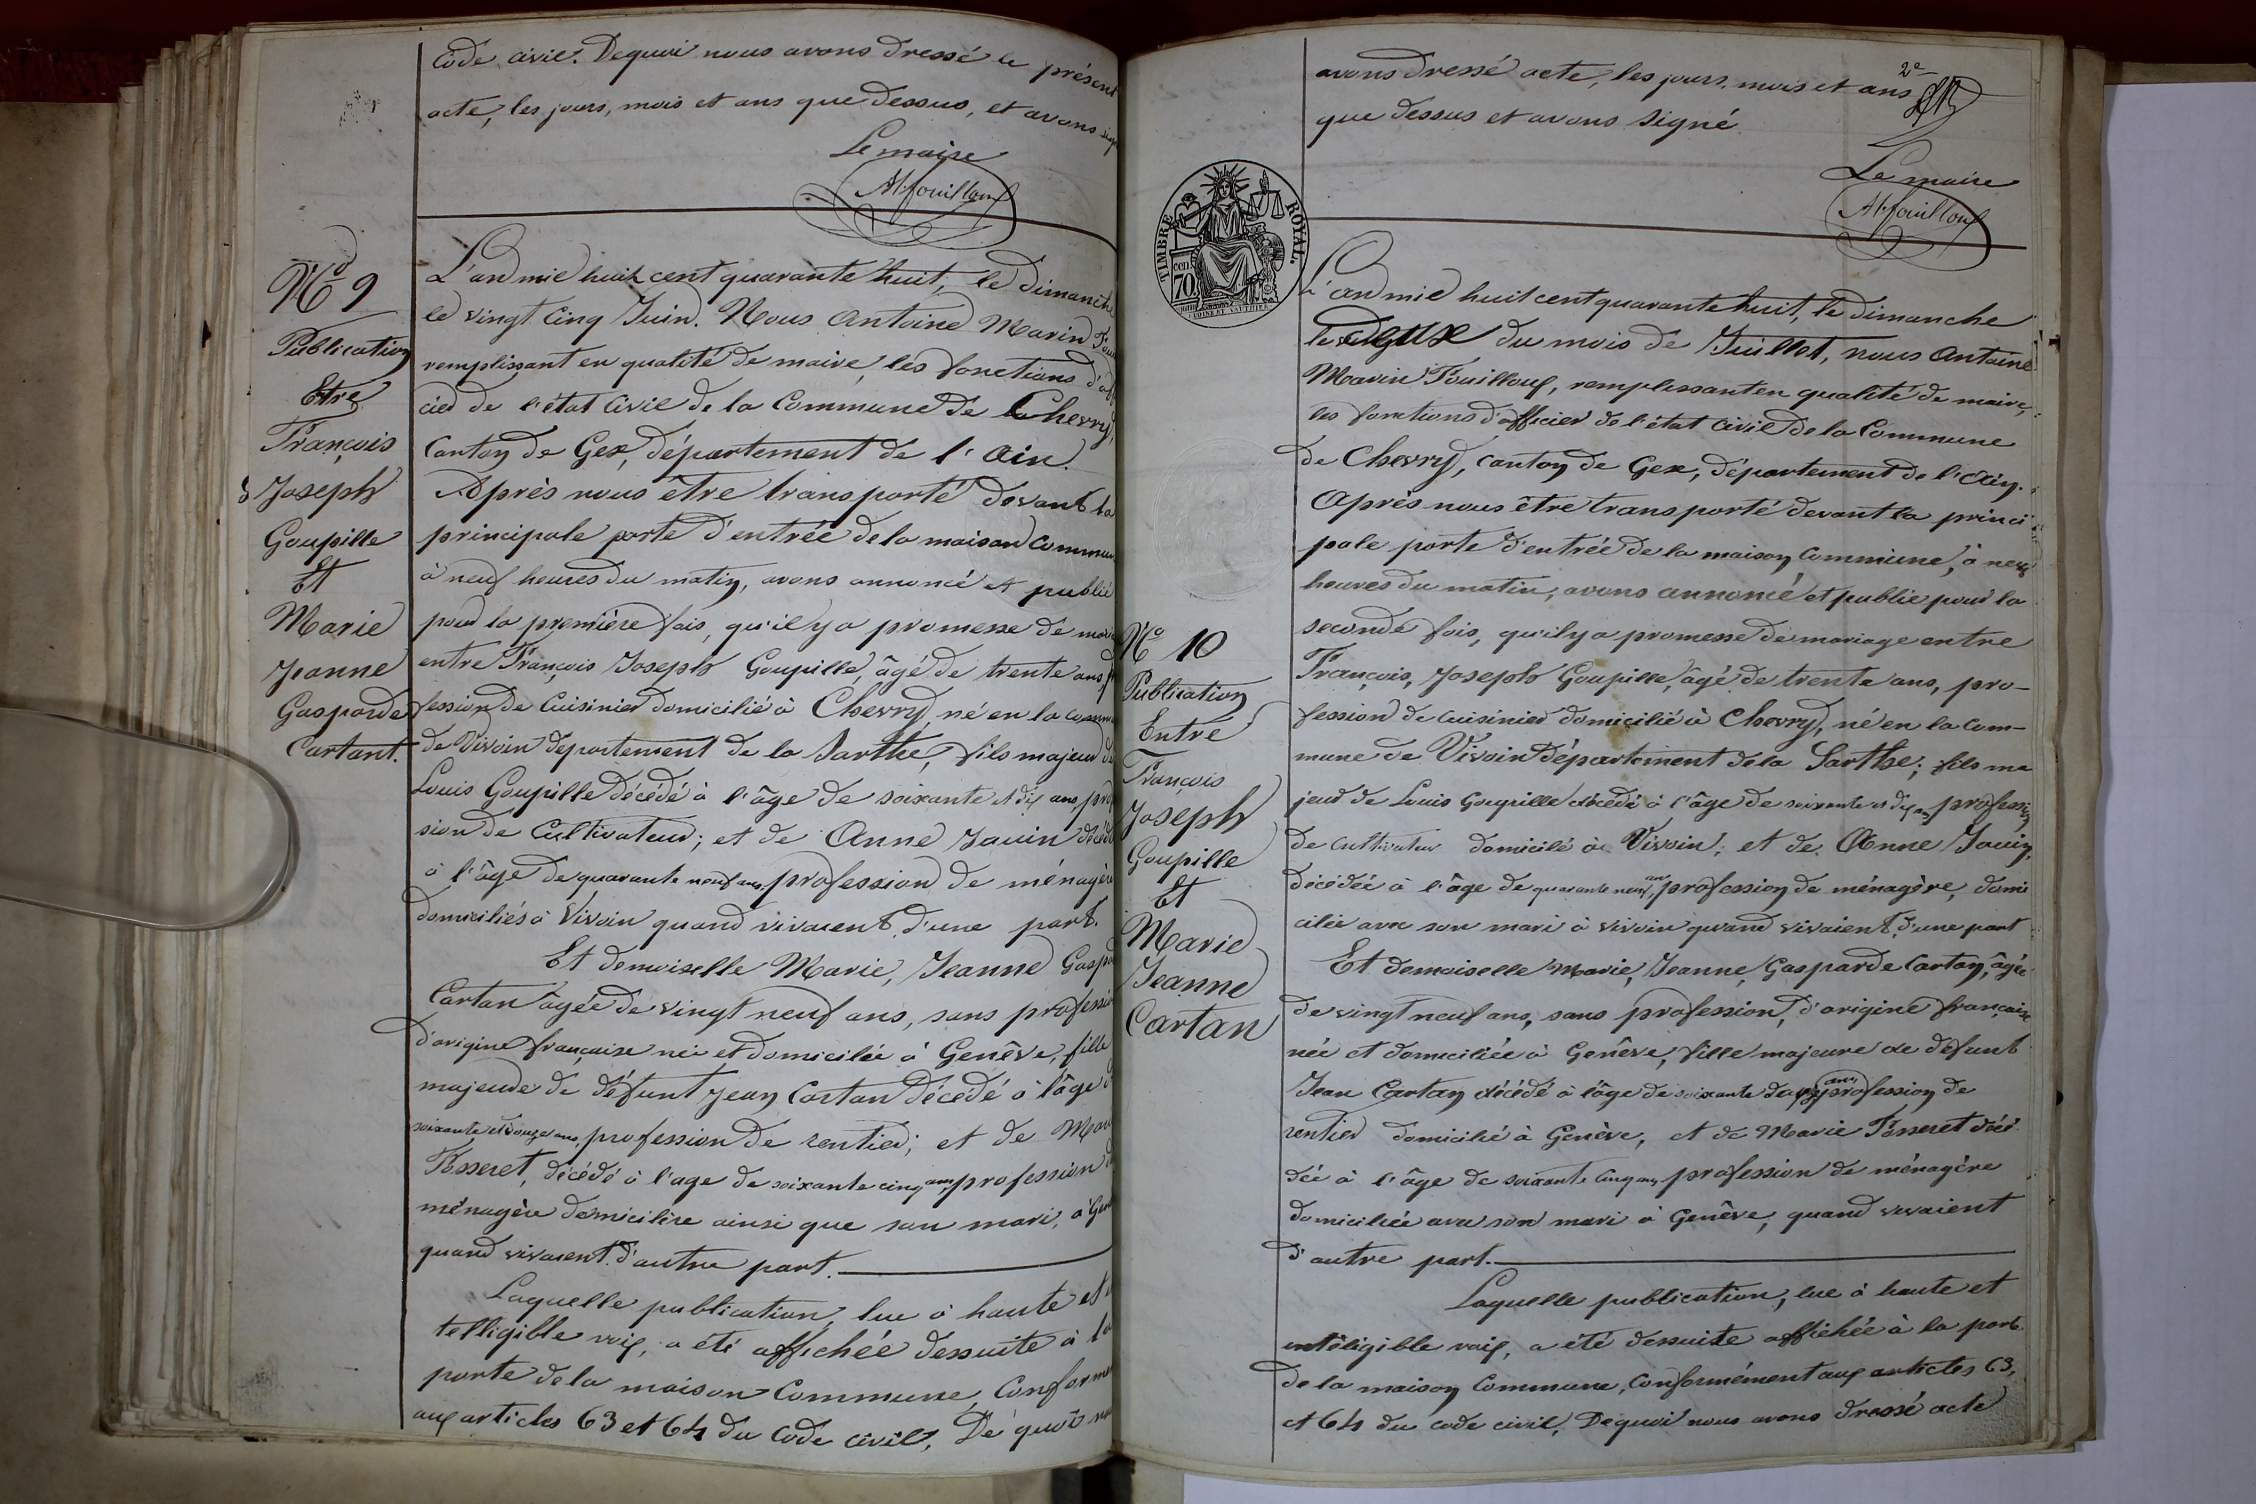 Code civil. Dequoi nous avons dressé le présent
acte, les jours, mois et ans que dessus, et avons
Le maire
AMfouilloux
No 9
Publication
Etre
François
Joseph
Goupille
Et
Marie
Jeanne
Gasparde
Cartant.
L'an mil huit cent quarante huit, le Dimanche
le vingt cinq Juin. Nous Antoine Marin
remplissant en qualité de maire, les fonctions d'of
cier de l'état Civil de la Commune de Chevry,
Canton de Gex, département de l'Ain.
Après nous être transporté devant la
principale porte d'entrée de la maison Commun
à neuf heures du matin, avons annoncé et publié
pour la première fois, qu'il y a promesse de mar
entre François Joseph Goupille, âgé de trente ans,
fession de Cuisinier domicilié à Chevry, né en la comm
de Vivoin departement de la Sarthe, fils majeur de
Louis Goupille décédé à l'âge de soixante et dix ans, pro
sion de Cultivateur; et de Anne Jouin décéd
à l'âge de quarante neuf ans, profession de ménagère
domiciliés à Vivoin quand vivaient d'une part.
Et demoiselle Marie, Jeanne Gaspa
Cartan âgée de vingt neuf ans, sans professio
d'origine française née et domiciliée à Genêve, fille
majeure de défunt Jean Cartan décédé à l'âge d
soixante et douze ans, profession de rentier; et de Mari
Posseret, décédé à l'age de soixante cinq ans, profession d
ménagère domicilière ainsi que son mari, à Gen
quand vivaient d'autre part.
Laquelle publication, lue à haute et
telligible voix, a été affichée dessuite à la
porte de la maison Commune, Conformé
aux articles 63 et 64 du Code civil, De quoi no
2e
avons dressé acte, les jours, mois et ans
que dessus et avons signé.
Le maire
AMfouilloux
TIMBRE ROYAL.
70
L'an mil huit cent quarante huit, le dimanche
le deux du mois de Juillet, nous Antoine
Marin Fouilloux, remplissant en qualité de maire,
les fonctions d'officier de l'état civil de la Commune
de Chevry, canton de Gex, département de l'Ain.
Après nous être transporté devant la princi
pale porte d'entrée de la maison Commune, à neuf
heures du matin, avons annoncé et publié pour la
seconde fois, qu'il y a promesse de mariage entre
No 10
Publication
Entre
François
Joseph
Goupille
Et
Marie
Jeanne
Cartan
François, Joseph Goupille, âgé de trente ans, pro-
fession de cuisinier domicilié à Chevry, né en la com-
mune de Vivoin département de la Sarthe; fils ma
jeur de Louis Goupille décédé à l'âge de soixante et dix ans, profession
de cultivateur domicilé à Vivoin; et de Anne Jouin,
décédée à l'âge de quarante neuf ans, profession de ménagère, domi
ciliée avec son mari à Vivoin quand vivaient d'une part
Et demoiselle Marie, Jeanne, Gasparde Cartan, âgée
de vingt neuf ans, sans profession, d'origine française
née et domiciliée à Genêve, fille majeure de défunt
Jean Cartan décédé à l'âge de soixante douze ans, profession de
rentier domicilié à Genève, et de Marie Posseret décé
dée à l'âge de soixante cinq ans, profession de ménagère
domiciliée avec son mari à Genêve, quand vivaient
d'autre part.
Laquelle publication, lue à haute et
intéligible voix, a été dessuite affichée à la port
de la maison Commune, Conformément aux articles 63,
et 64 du code civil, Dequoi nous avons dressé acte